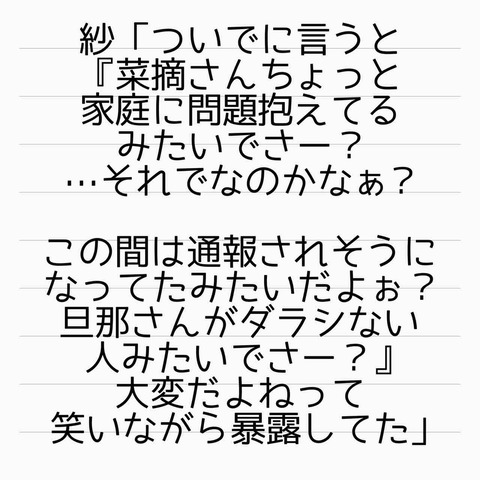 紗「ついでに言うと
『菜摘さんちょっと
家庭に問題抱えてる
みたいでさー？
…それでなのかなぁ？
この間は通報されそうに
なってたみたいだよぉ？
旦那さんがダラシない
人みたいでさー？』
大変だよねって
笑いながら暴露してた」